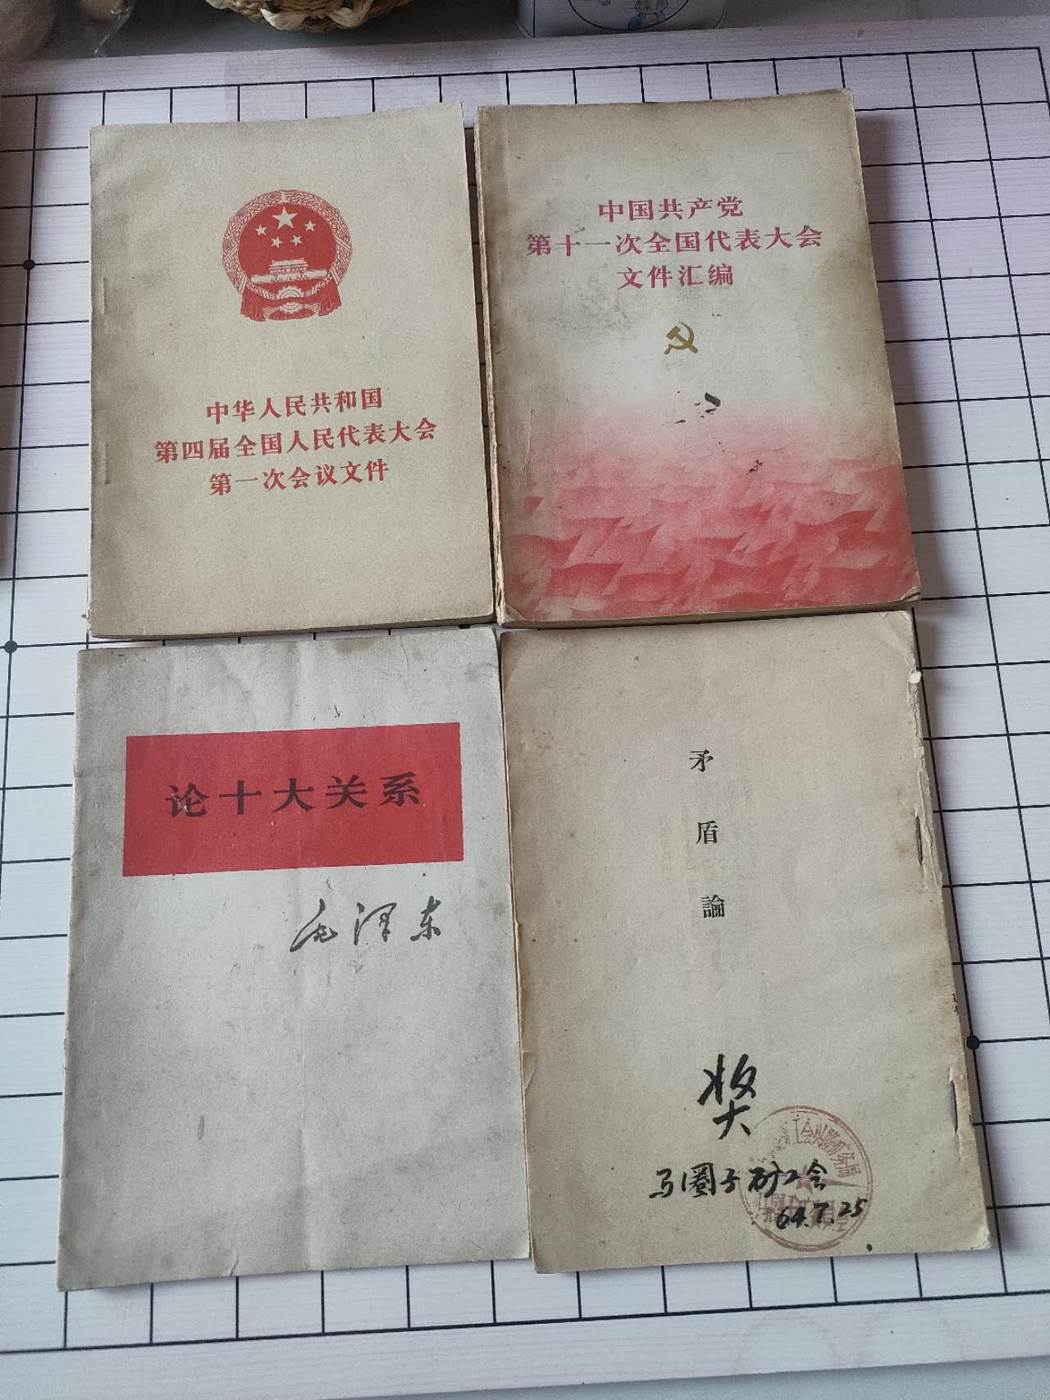 中华人民共和国
第四届全国人民代表大会
第一次会议文件
中国共产党
第十一次全国代表大会
文件汇编
论十大关系
毛泽东
矛
盾
論
奖
马圈子矿工会
64.7.25